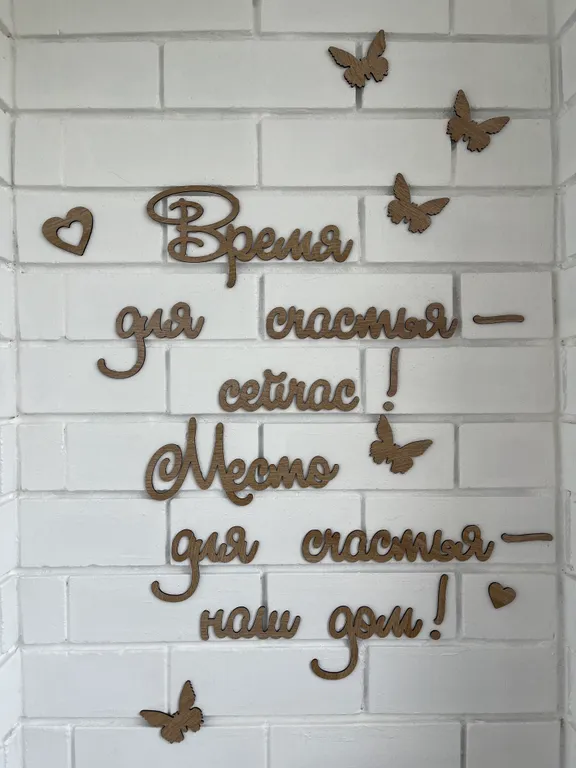 Время
для счастья —
сейчас!
Место
для счастья —
наш дом!